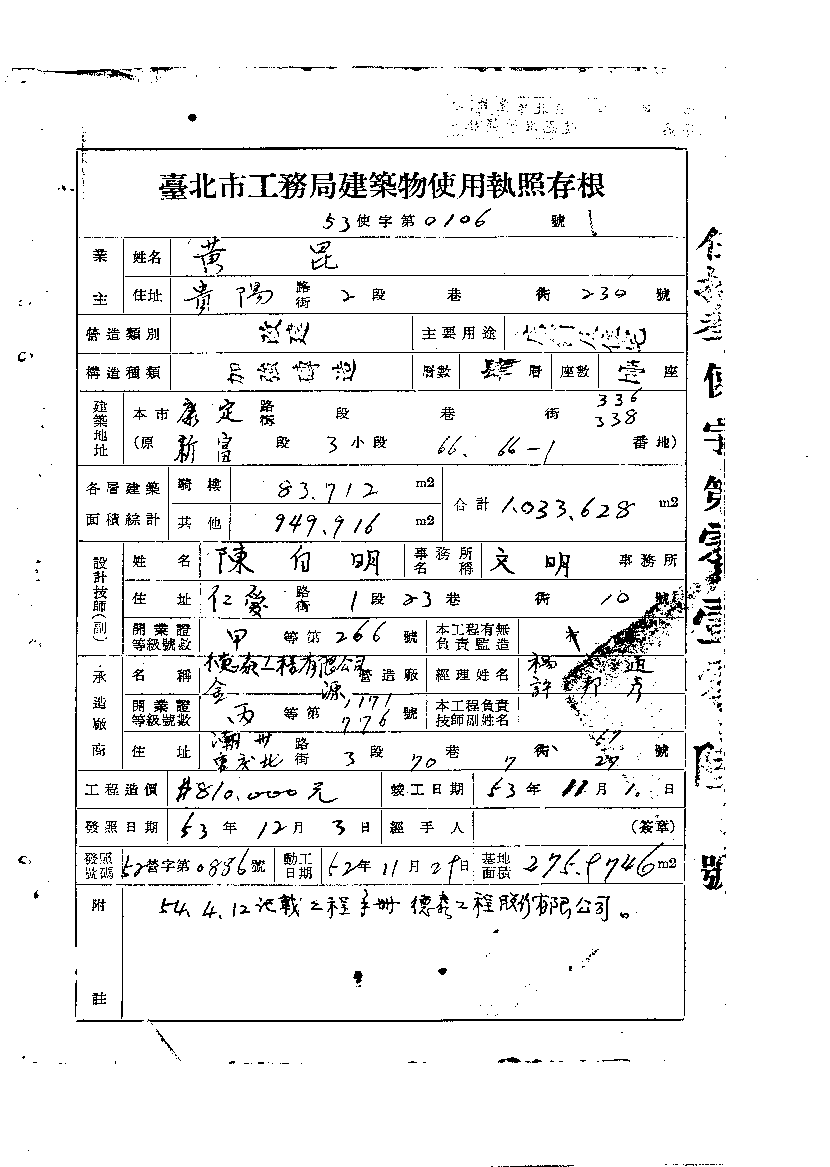 臺北市工務局建築物使用執照存根
53使字第0106號
業主 姓名 黃 昆
住址 貴陽路街 2段 巷 街 230 號
營造類別 改建 主要用途
構造種類 加強磚造 層數 肆層 座數 壹座
建築地址 本市 康定路街 段 巷 街 336 338
(原 新富 段 3小段 66. 66-1 番地)
各層建築面積綜計 騎樓 83.712 m2 合計 1,033.628 m2
其他 949.916 m2
設計技師(副) 姓名 陳 伯 明 事務所名稱 文 明 事務所
住址 仁愛路街 1段 23巷 街 10 號
開業證等級號數 甲 等第 266 號 本工程有無負責監造
承造廠商 名稱 德泰工程有限公司 金 源 營造廠 經理姓名 楊 許 邦 彥
開業證等級號數 丙 等第 1,171 776 號 本工程負責技師副姓名
住址 潮州 路街 3段 70巷 7街 號
工程造價 #810,000元 竣工日期 53年 11月 日
發照日期 53年 12月 3日 經手人 (簽章)
發照號碼 52營字第0886號 動工日期 52年11月29日 基地面積 275.9746 m2
附註 54.4.12記載工程手冊 德泰工程股份有限公司。